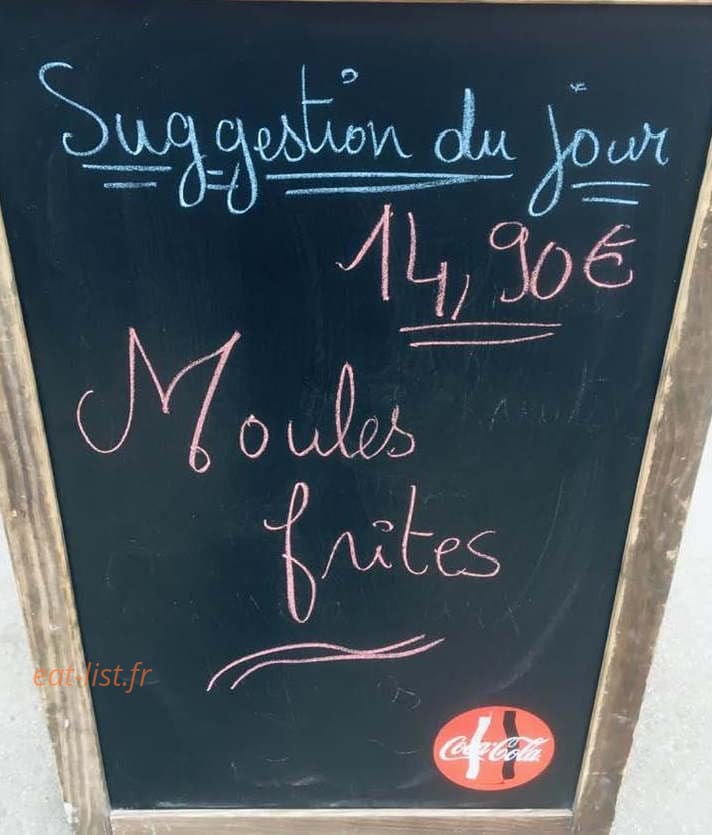 Suggestion du jour
14,90€
Moules
frites
eat.list.fr
Coca-Cola